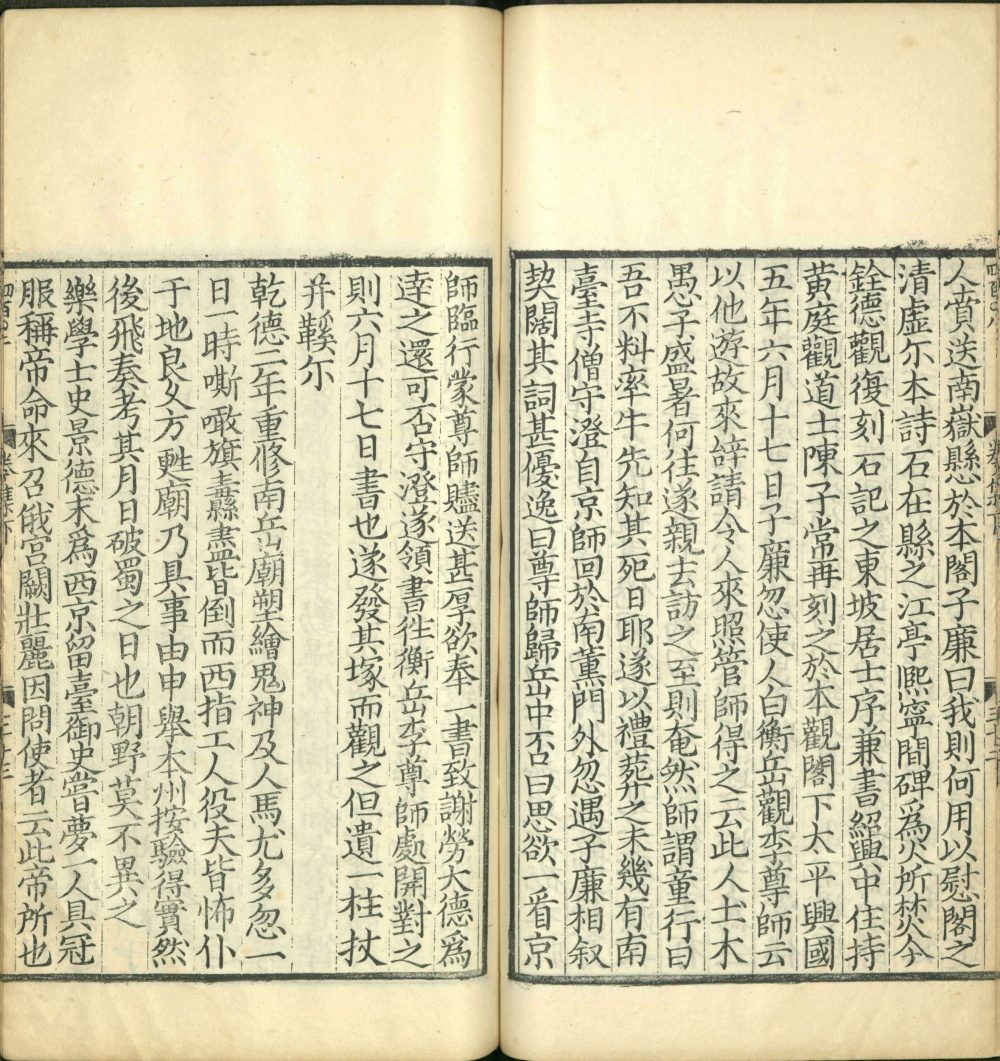 人賫送南嶽懸於本閣子廉曰我則何用以慰閣之
清虛尓本詩石在縣之江亭熈寧間碑爲火所焚今
銓德觀復刻石記之東坡居士序兼書紹興中住持
黄庭觀道士陳子常再刻之於本觀閣下太平興國
五年六月十七日子廉忽使人白衡岳觀李尊師云
以他遊故來辞請令人來照管師得之云此人土木
愚子盛暑何往遂親去訪之至則奄然師謂童行曰
吾不料率牛先知其死日耶遂以禮葬之未幾有南
臺寺僧守澄自京師回於南薰門外忽遇子廉相叙
契闊其詞甚優逸曰尊師歸岳中否曰思欲一看京
師臨行蒙尊師贐送甚厚欲奉一書致謝勞大德爲
達之還可否守澄遂領書徃衡岳李尊師處開對之
則六月十七日書也遂發其塚而觀之但遺一柱杖
并鞵尓
乾德二年重修南岳廟塑繪鬼神及人馬尤多忽一
日一時嘶噉旗纛盡皆倒而西指工人役夫皆怖仆
于地良久方甦廟乃具事由申舉本州按驗得實然
後飛奏考其月日破蜀之日也朝野莫不異之
樂學士史景德末爲西京留臺御史嘗夢一人具冠
服稱帝命來召俄宫闕壯麗因問使者云此帝所也